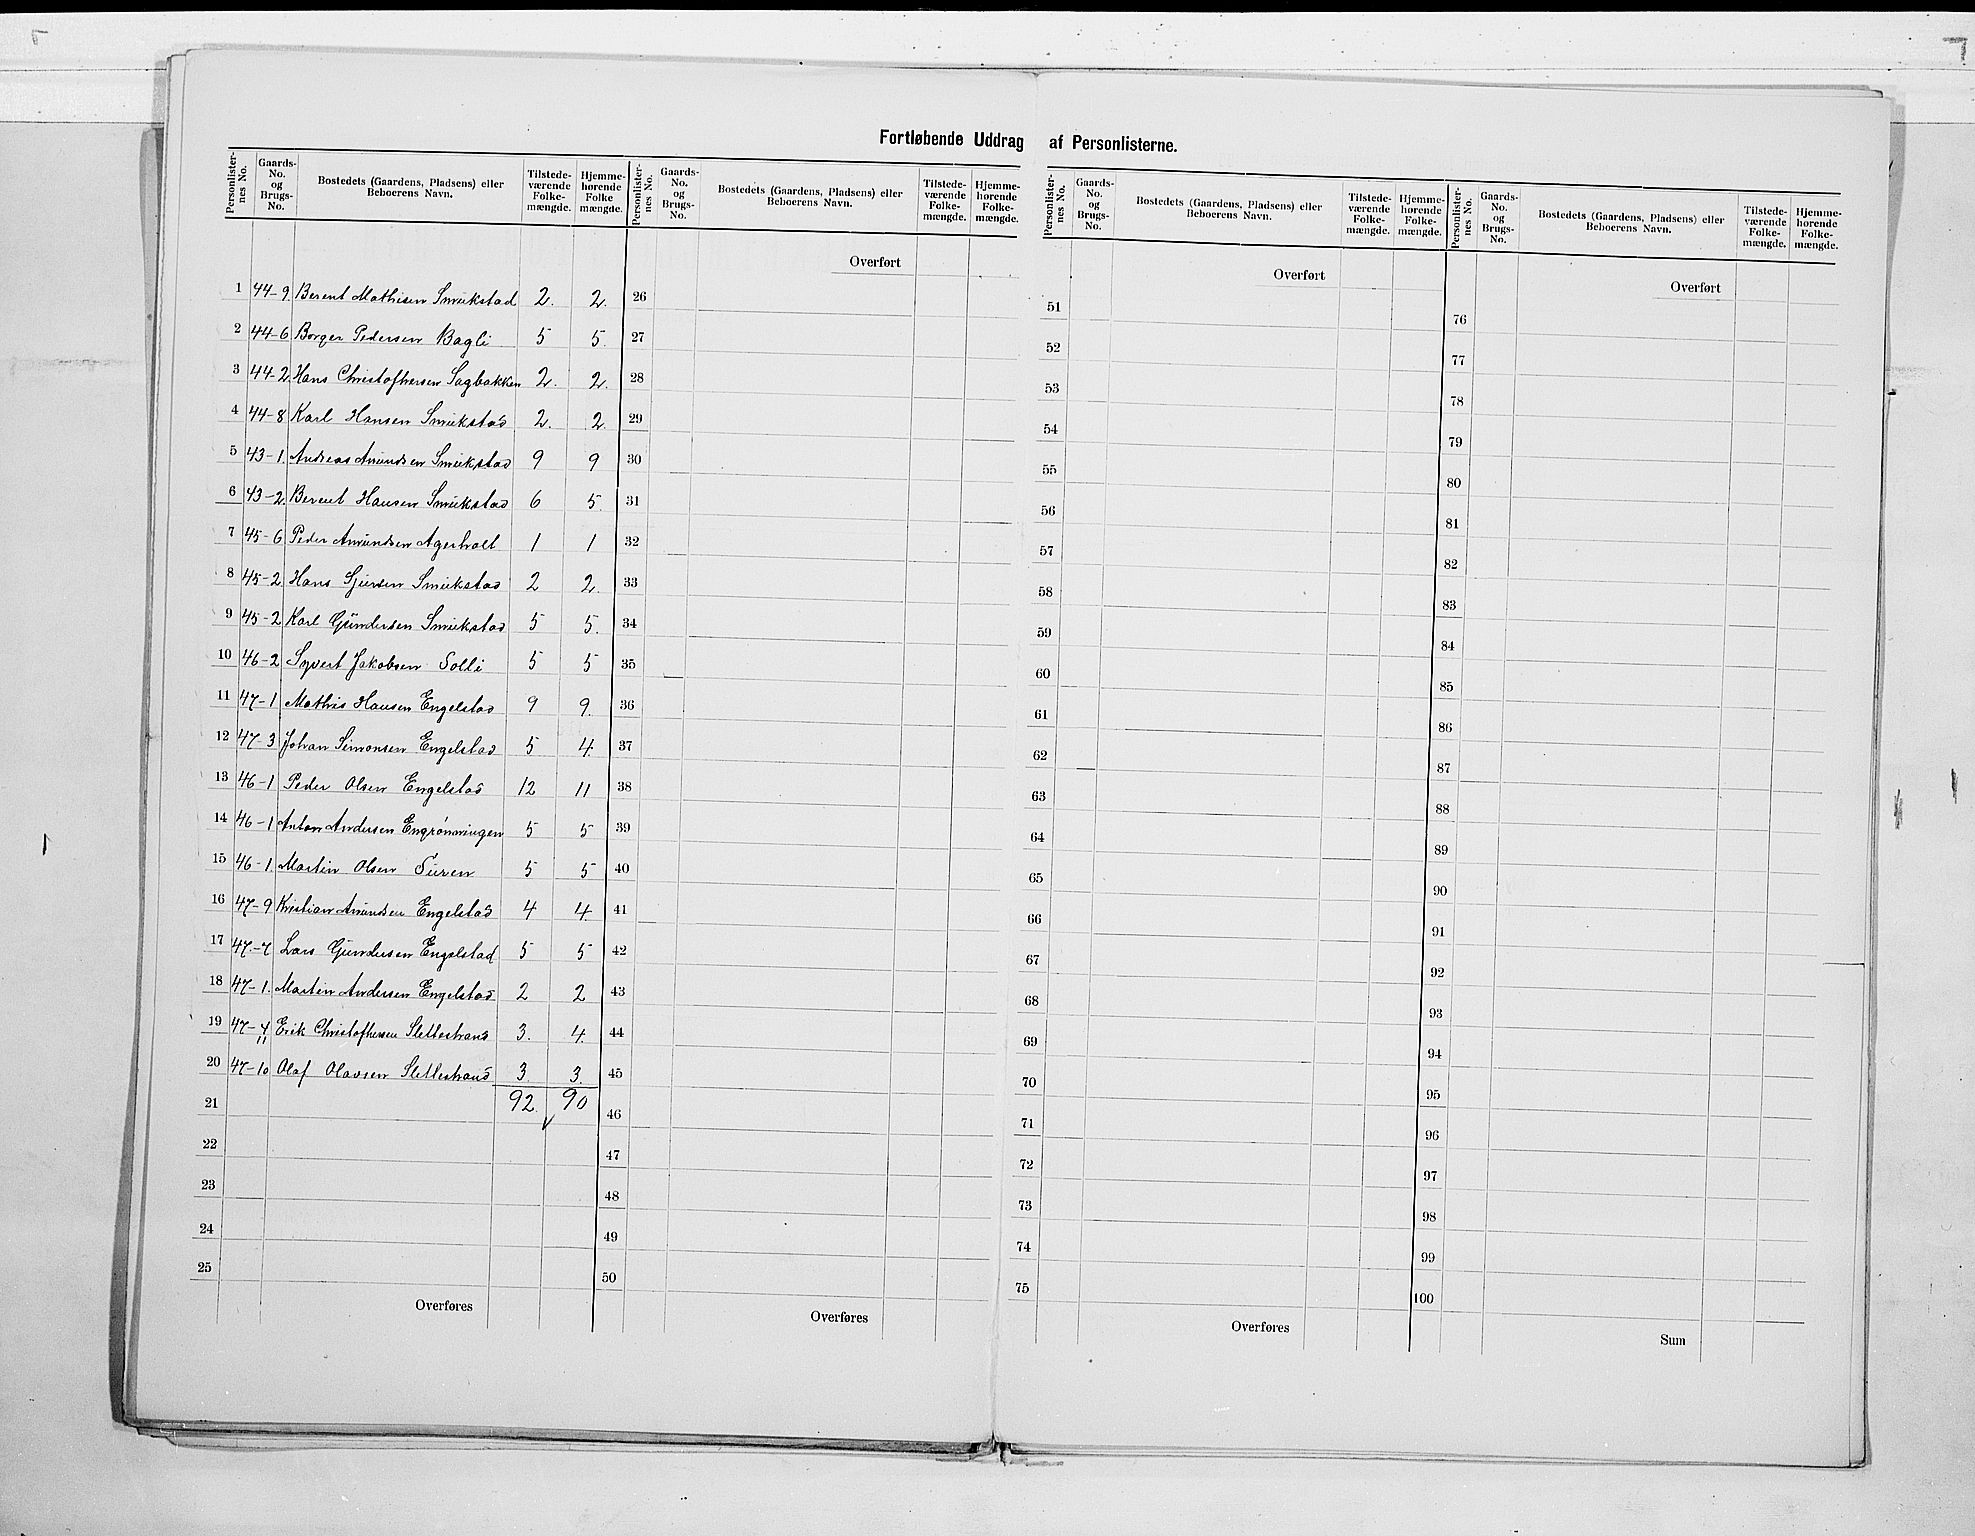 Fortløbende Uddrag af Personlisterne.
Personlister-nes No. Gaards-No. og Brugs-No. Bostedets (Gaardens, Pladsens) eller Beboerens Navn. Tilstede-værende Folke-mængde. Hjemme-hørende Folke mængde. Personlister-nes No. Gaards-No. og Brugs-No. Bostedets (Gaardens, Pladsens) eller Beboerens Navn. Tilstede-værende Folke-mængde. Hjemme-hørende Folke-mængde. Personlister-nes No. Gaards-No. og Brugs-No. Bostedets (Gaardens, Pladsens) eller Beboerens Navn. Tilstede-værende Folke-mængde. Hjemme-hørende Folke-mængde. Personlister-nes No. Gaards-No. og Brugs-No. Bostedets (Gaardens, Pladsens) eller Beboerens Navn. Tilstede-værende Folke-mængde. Hjemme-hørende Folke-mængde.
Overført Overført Overført
1 44-9 Berent Mathisen Smukstad 2. 2. 26 51 76
2 44-6 Borger Pedersen Bagli 5 5. 27 52 77
3 44-2 Hans Christofhersen Sagbakken 2. 2. 28 53 78
4 44-8 Karl Hansen Smukstad 2. 2. 29 54 79
5 43-1. Andreas Amundsen Smukstad 9 9 30 55 80
6 43-2. Berent Hansen Smukstad 6 5. 31 56 81
7 45-6 Peder Amundsen Agerholt 1 1 32 57 82
8 45-2. Hans Smukstad 2 2. 33 58 83
9 45-2 Karl Gundersen Smukstad 5 5. 34 59 84
10 46-2 Syvert Jakobsen Solli 5 5 35 60 85
11 47-1 Mathis Hansen Engelstad 9 9. 36 61 86
12 47-3 Johan Simonsen Engelstad 5 4. 37 62 87
13 46-1 Peder Olsen Engelstad 12 11 38 63 88
14 46-1 Anton Andersen Engrønningen 5 5 39 64 89
15 46-1. Martin Olsen 5 5 40 65 90
16 47-9 Kristian Amundsen Engelstad 4 4. 41 66 91
17 47-7 Lars Gundersen Engelstad 5 5 42 67 92
18 47-1. Martin Andersen Engelstad 2 2 43 68 93
19 47-4 11 Erik Christofhersen Slettestrand 3. 4. 44 69 94
20 47-10 Olaf Olavsen Slettestrand 3 3. 45 70 95
21 92. 90 46 71 96
22 47 72 97
23 48 73 98
24 49 74 99
25 50 75 100
Overføres Overføres Overføres Sum